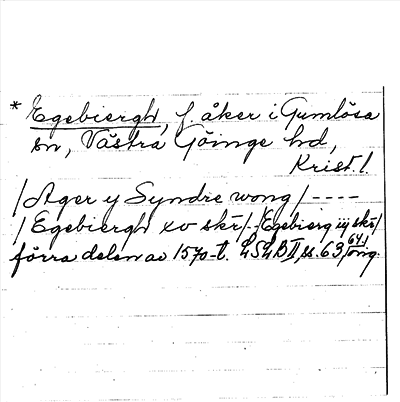 * Egebiergh, f. åker i Gumlösa
sn, Västra Göinge hd,
Krist. l.
/Ager y Syndre wong/ ----
/Egebiergh xv skr/--/Egebierg iij skr/
förra delen av 1570-t. LSLB II, ss. 63, 641
orig.